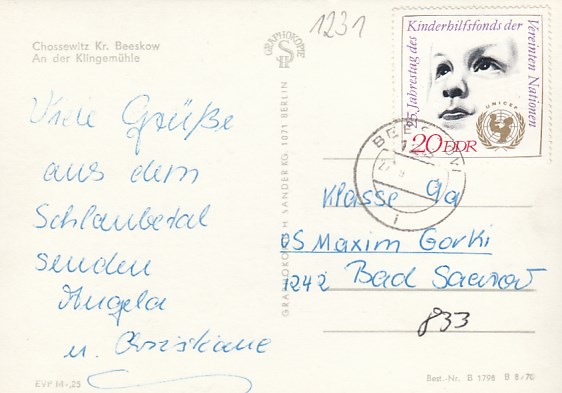 1231
Chossewitz Kr. Beeskow
An der Klingemühle
Viele Grüße
aus dem
Schlaubetal
senden
Angela
u. Christiane
EVP M -,25
GRAPHOKOPIE
GRAPHOKOPIE H. SANDER KG, 1071 BERLIN
25. Jahrestag des Kinderhilfsfonds der Vereinten Nationen
UNICEF
20 DDR
Klasse 9a
OS Maxim Gorki
1242 Bad Saarow
833
Best.-Nr. B 1798 B 8/70